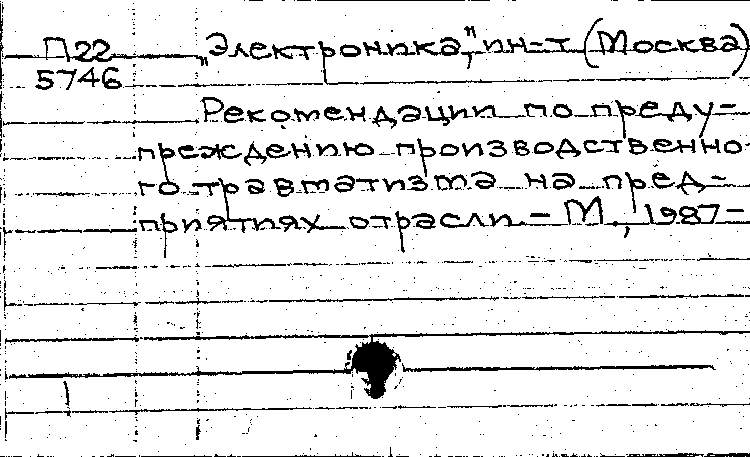 П22 „Электроника", ин-т (Москва)
5746
Рекомендации по преду-
преждению производственно-
го травматизма на пред-
приятиях отрасли. – М., 1987–